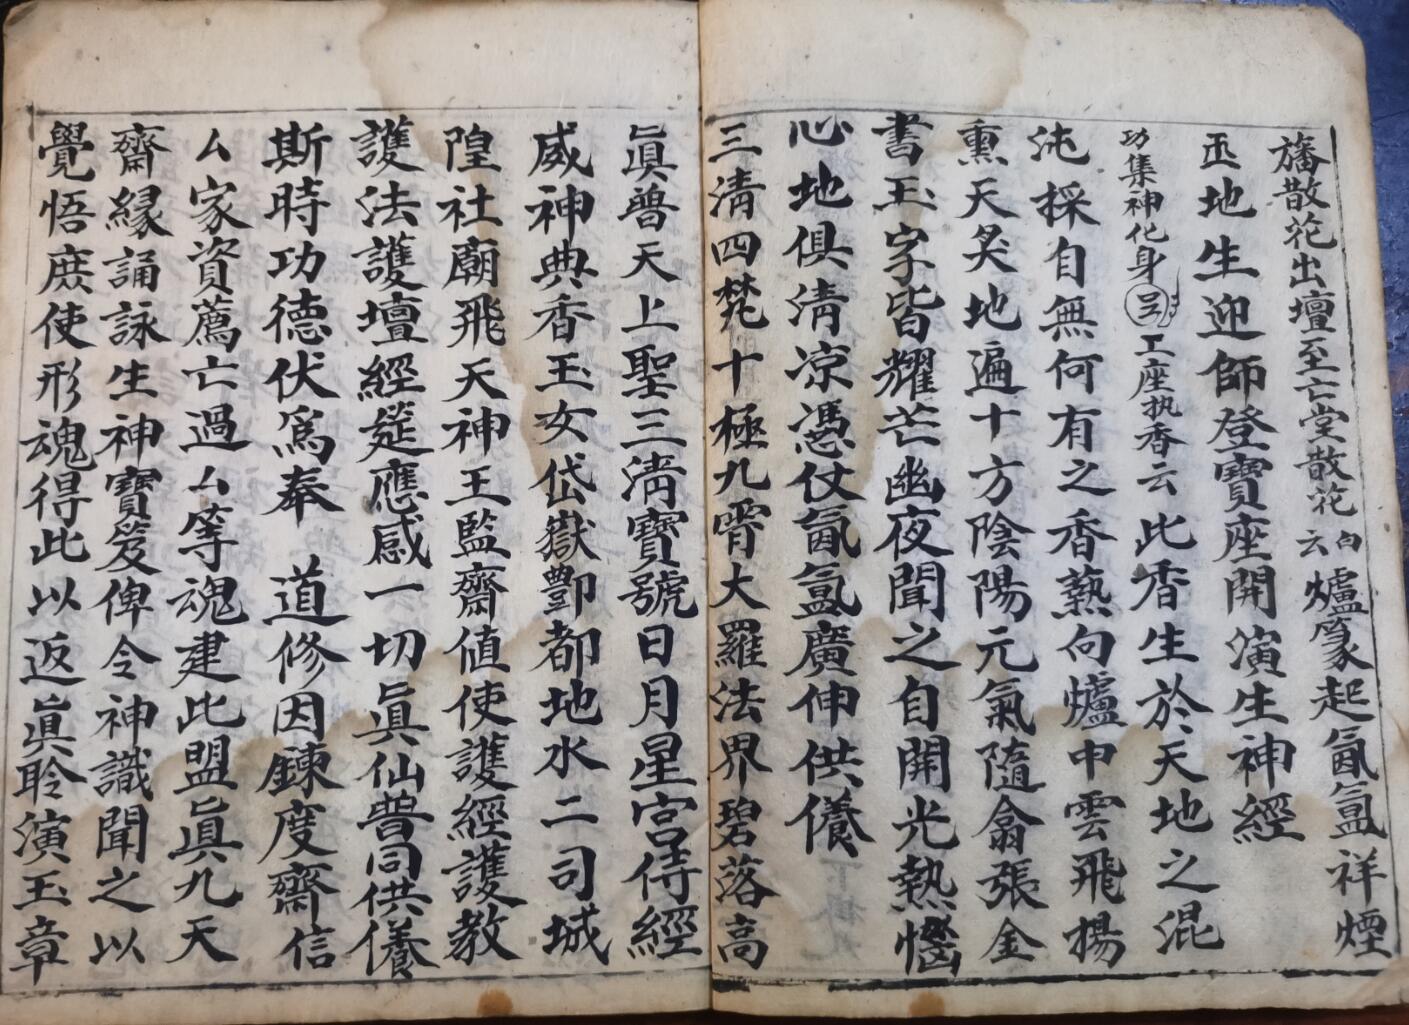 旛散花出壇至亡堂散花 白云 爐篆起氤氳祥煙
匝地生迎師登寶座開演生神經
功集神化身 上座执香云此香生於天地之混
沌採自無何有之香爇向爐中雲飛揚
熏天炙地遍十方陰陽元氣隨翕張金
書玉字皆耀芒幽夜聞之自開光熱惱
心地俱清凉憑仗氤氳廣伸供養
三清四梵十極九霄大羅法界碧落高
眞普天上聖三清寶號日月星宫侍經
威神典香玉女岱嶽酆都地水二司城
隍社廟飛天神王監齋值使護經護教
護法護壇經筵應感一切眞仙普同供養
斯時功德伏爲奉 道修因錬度齋信
厶家資薦亡過厶等魂建此盟眞九天
齋緣誦詠生神寶笈俾令神識聞之以
覺悟庶使形魂得此以返眞聆演玉章